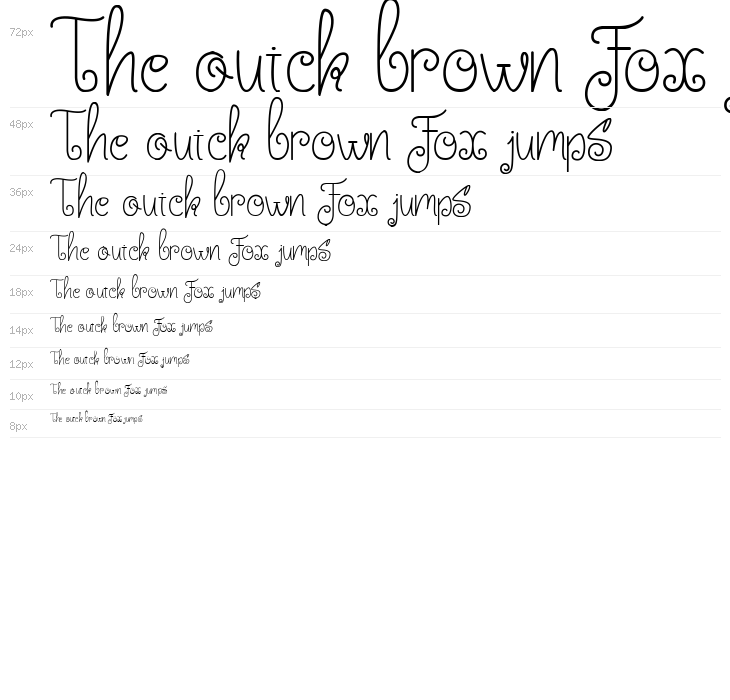 72px The quick brown Fox
48px The quick brown Fox jumps
36px The quick brown Fox jumps
24px The quick brown Fox jumps
18px The quick brown Fox jumps
14px The quick brown Fox jumps
12px The quick brown Fox jumps
10px The quick brown Fox jumps
8px The quick brown Fox jumps